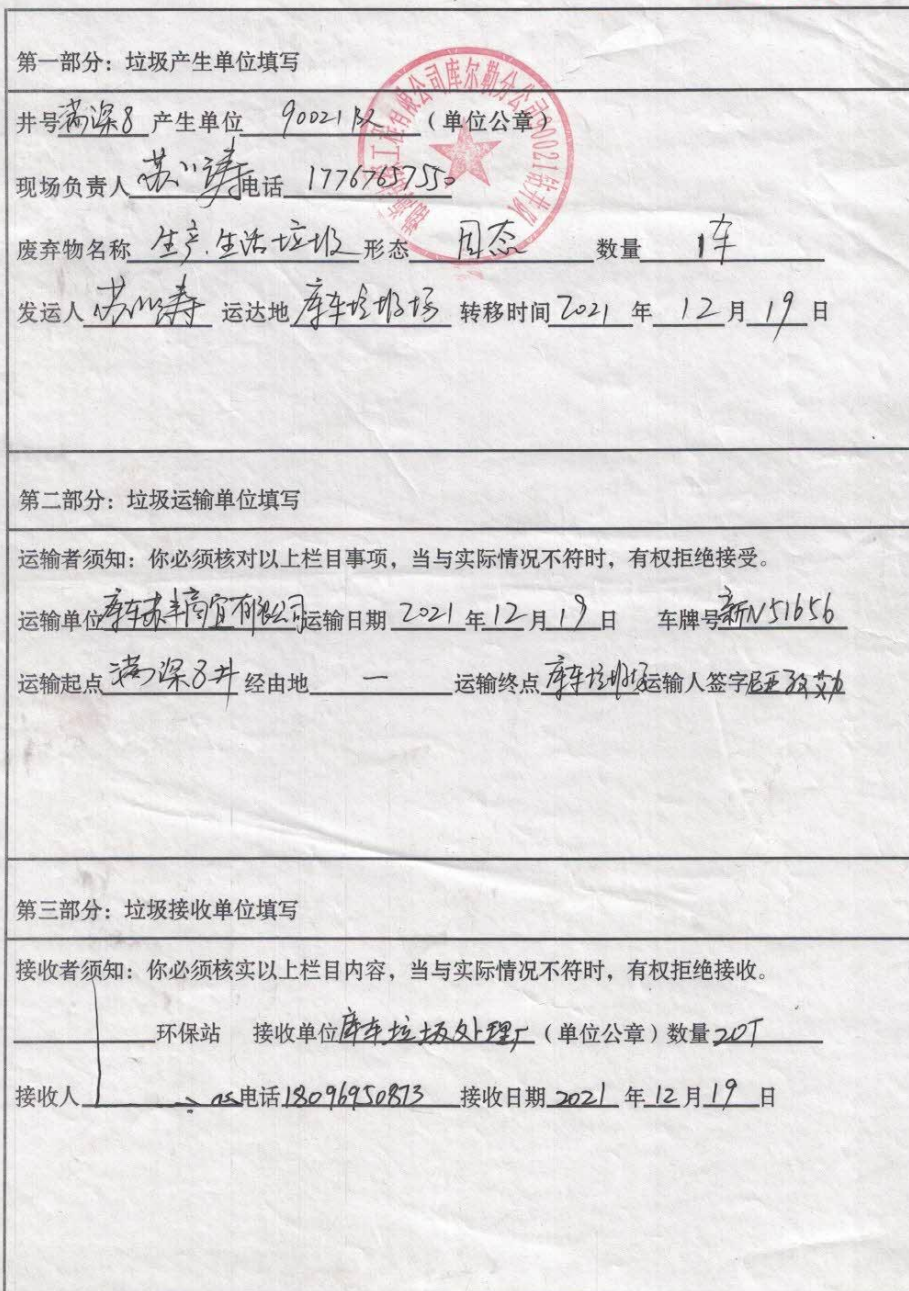 第一部分：垃圾产生单位填写
井号满深8 产生单位 90021队 （单位公章）
工程有限公司库尔勒分公司90021钻井队
现场负责人 电话 17767657550
废弃物名称 生产.生活垃圾 形态 固态 数量 1车
发运人 运达地 库车垃圾场 转移时间 2021 年 12 月 19 日
第二部分：垃圾运输单位填写
运输者须知：你必须核对以上栏目事项，当与实际情况不符时，有权拒绝接受。
运输单位 库车 有限公司 运输日期 2021 年 12 月 19 日 车牌号 新N51656
运输起点 满深8井 经由地 — 运输终点 库车垃圾场 运输人签字
第三部分：垃圾接收单位填写
接收者须知：你必须核实以上栏目内容，当与实际情况不符时，有权拒绝接收。
环保站 接收单位 库车垃圾处理厂（单位公章）数量 20T
接收人 电话 18096950873 接收日期 2021 年 12 月 19 日